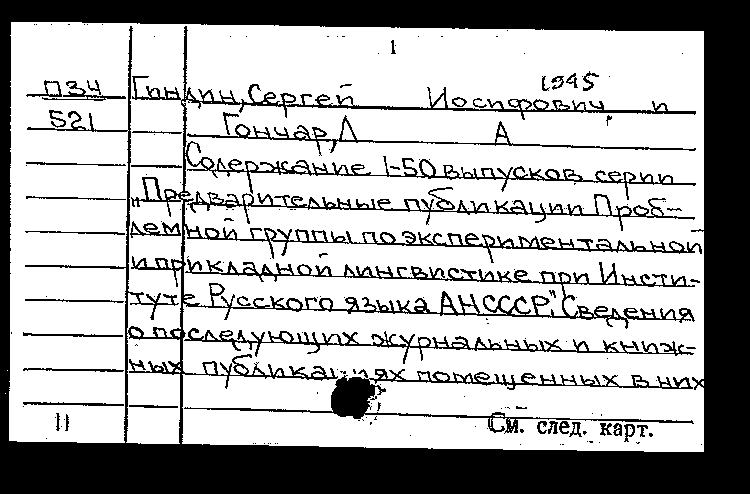 1
1945
П34 Гиндин, Сергей Иосифович, и
521 Гончар, Л А
Содержание 1-50 выпусков серии
„Предварительные публикации Проб-
лемной группы по экспериментальной
и прикладной лингвистике при Инсти-
туте Русского языка АН СССР". Сведения
о последующих журнальных и книж-
ных публикациях помещенных в них
11 См. след. карт.